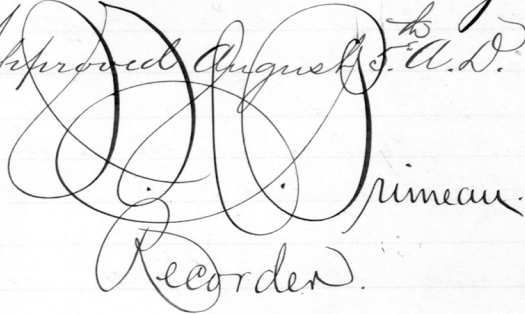 Approved August 5th A.D.
D. D. Primeau.
Recorder.